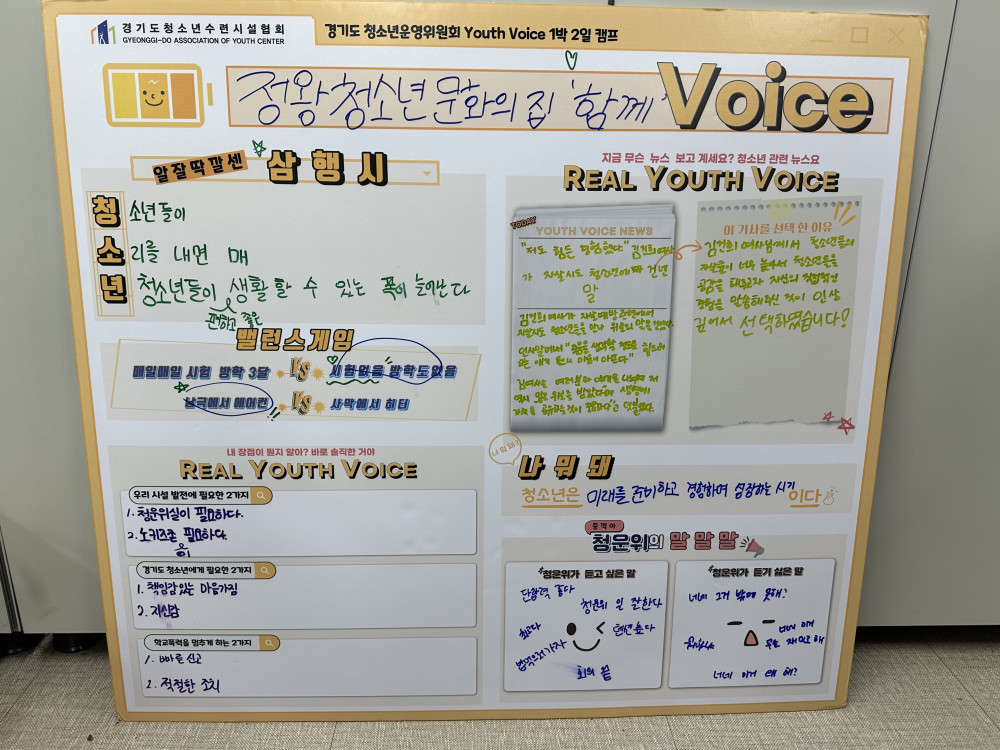 경기도청소년수련시설협회
GYEONGGI-DO ASSOCIATION OF YOUTH CENTER
경기도 청소년운영위원회 Youth Voice 1박 2일 캠프
정왕청소년문화의집 '함께' Voice
알잘딱깔센 삼행시
청 소년들이
소 리를 내면 매
년 청소년들이 생활할 수 있는 폭이 늘어난다
편하고 좋은
밸런스게임
매일매일 시험 방학 3달 VS 시험없음 방학도없음
남극에서 에어컨 VS 사막에서 히터
내 장점이 뭔지 알아? 바로 솔직한 거야
REAL YOUTH VOICE
우리 시설 발전에 필요한 2가지
1. 청운위실이 필요하다.
2. 노키즈존 필요하다.
이
경기도 청소년에게 필요한 2가지
1. 책임감있는 마음가짐
2. 자신감
학교폭력을 멈추게 하는 2가지
1. 빠른 신고
2. 적절한 조치
지금 무슨 뉴스 보고 계세요? 청소년 관련 뉴스요
REAL YOUTH VOICE
TODAY
YOUTH VOICE NEWS
"저도 힘든 경험했다." 김건희여사
가 자살시도 청소년에 건넨
말
김건희여사가
자살시도 청소년들을 만나 위로의 말을 건넸다.
이 기사를 선택 한 이유
김건희 여사님께서 청소년들의
자살율이 너무 높아서 청소년들을
공감을 해주고자 자신의 직접적인
경험을 말씀해주신 것이 인상
깊어서 선택하였습니다!
너 뭐 돼?
나 뭐 돼
청소년은 미래를 준비하고 경험하며 성장하는 시기 이다
중꺽마
청운위의 말말말
청운위가 듣고 싶은 말
단합력 좋다
청운위 일 잘한다
최고다
밥먹으러가자
회의 끝
청운위가 듣기 싫은 말
네네 그거 밖에 못해?
네네 이거 왜 해?